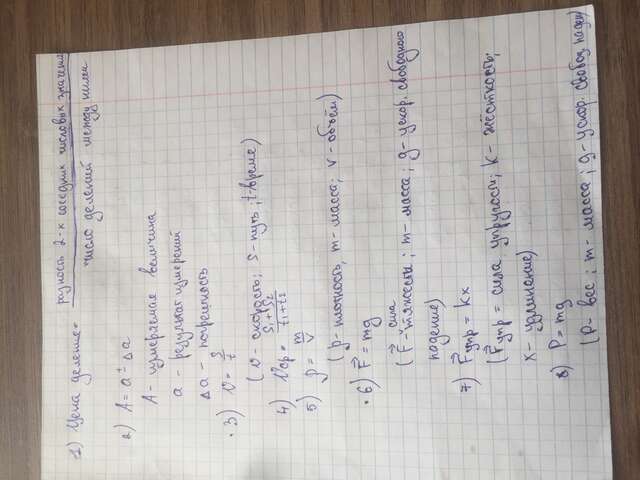 разность 2-х соседних числовых значений
1) Цена деление = число делений между ними
2) A = a ± Δa
A - измеряемая величина
a - результат измерений
Δa - погрешность
3) v = S/t
(v - скорость; S - путь; t - время)
4) Vср = S₁ + S₂ / t₁ + t₂
5) ρ = m/v
(ρ - плотность, m - масса; v - объём)
6) F⃗ = mg
сила
(F⃗ - тяжести; m - масса; g - ускор. свободного
падение)
7) F⃗упр = kx
(F⃗упр = сила упругости; k - жёсткость;
x - удлинение)
8) P = mg
(P - вес; m - масса; g - ускор. свобод. падения)